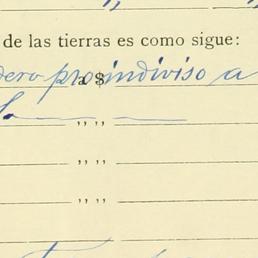 de las tierras es como sigue:
dero proindiviso a
a $
„ „
„ „
„ „